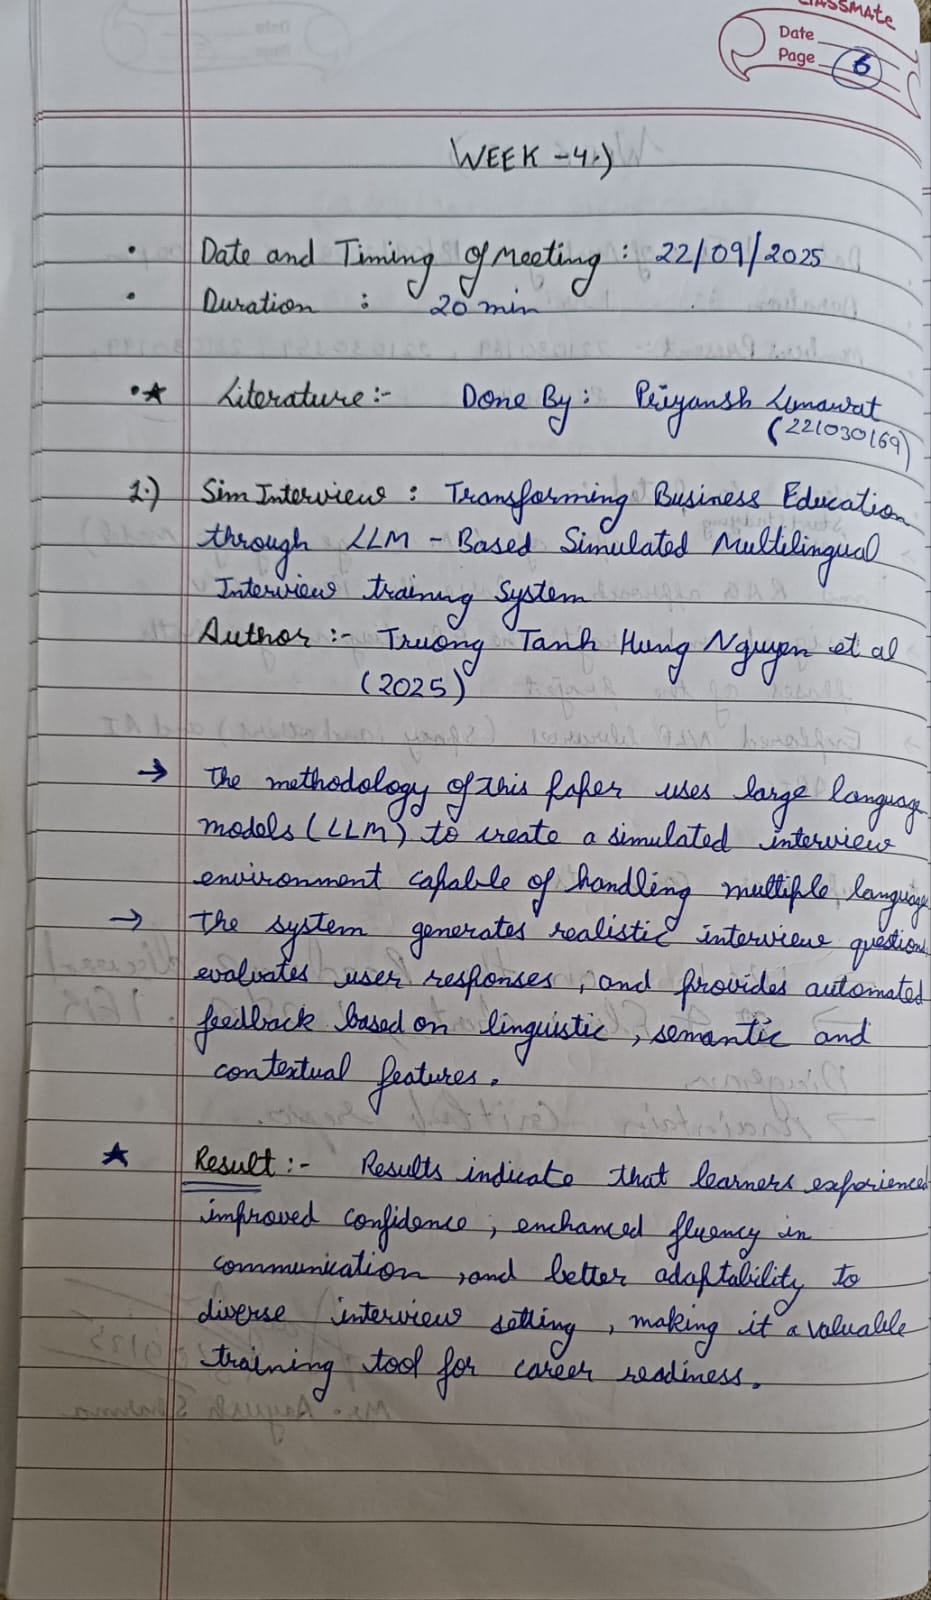 classmate
Date
Page 6
WEEK - 4.)
• Date and Timing of Meeting : 22/09/2025
• Duration : 20 min
•★ Literature:- Done By: Priyansh Limawat
(221030169)
1.) Sim Interview : Transforming Business Education
through LLM - Based Simulated Multilingual
Interview training System
Author :- Truong Tanh Hung Nguyen et al
(2025)
→ The methodology of this paper uses large language
models (LLM) to create a simulated interview
environment capable of handling multiple language
→ the system generates realistic interview questions,
evaluates user responses, and provides automated
feedback based on linguistic, semantic and
contextual features.
★ Result :- Results indicate that learners experienced
improved confidence, enchanced fluency in
communication, and better adaptability to
diverse interview setting, making it a valuable
training tool for career readiness.